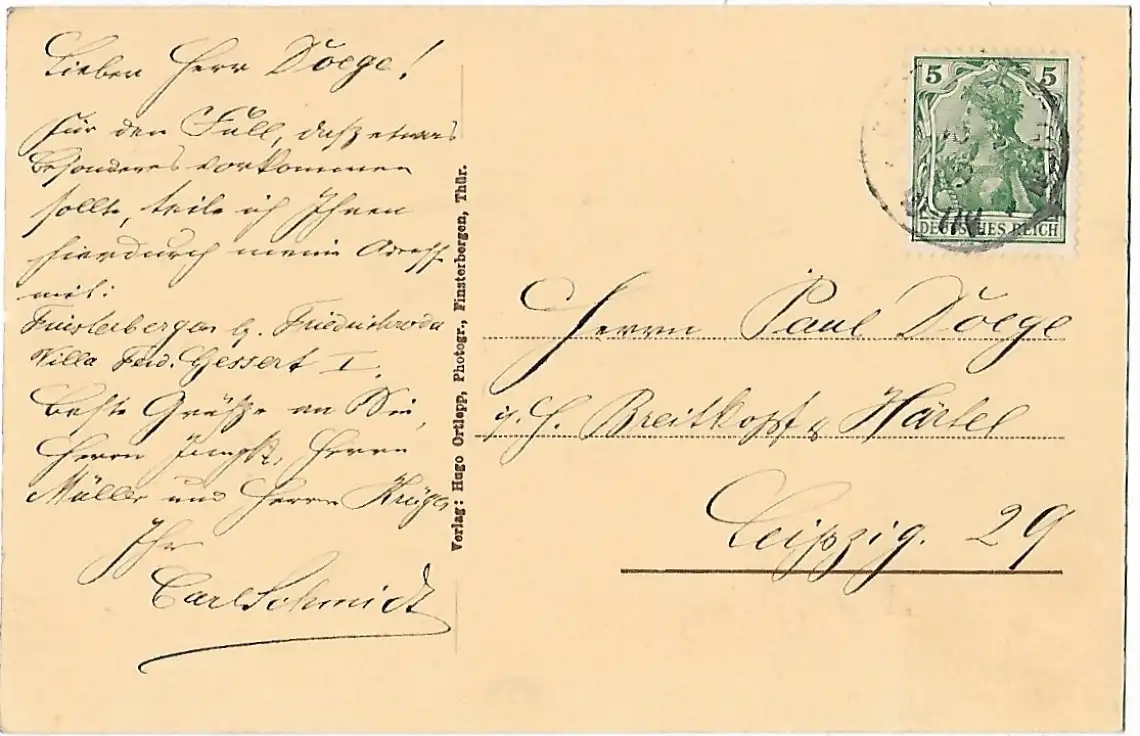 Lieber Herr Doege!
Für den Fall, daß etwas
Besonderes vorkommen
sollte, teile ich Ihnen
hierdurch meine Adresse
mit:
Finsterbergen b/. Friedrichroda
Villa Ferd. Gessert I.
Beste Grüße an Sie,
Herrn Herrn
Müller und Herrn Krüger
Ihr
Carl Schmidt
Verlag: Hugo Ortlepp, Photogr., Finsterbergen, Thür.
5 5
DEUTSCHES REICH
Herrn Paul Doege
i/H. Breitkopf & Härtel
Leipzig. 29